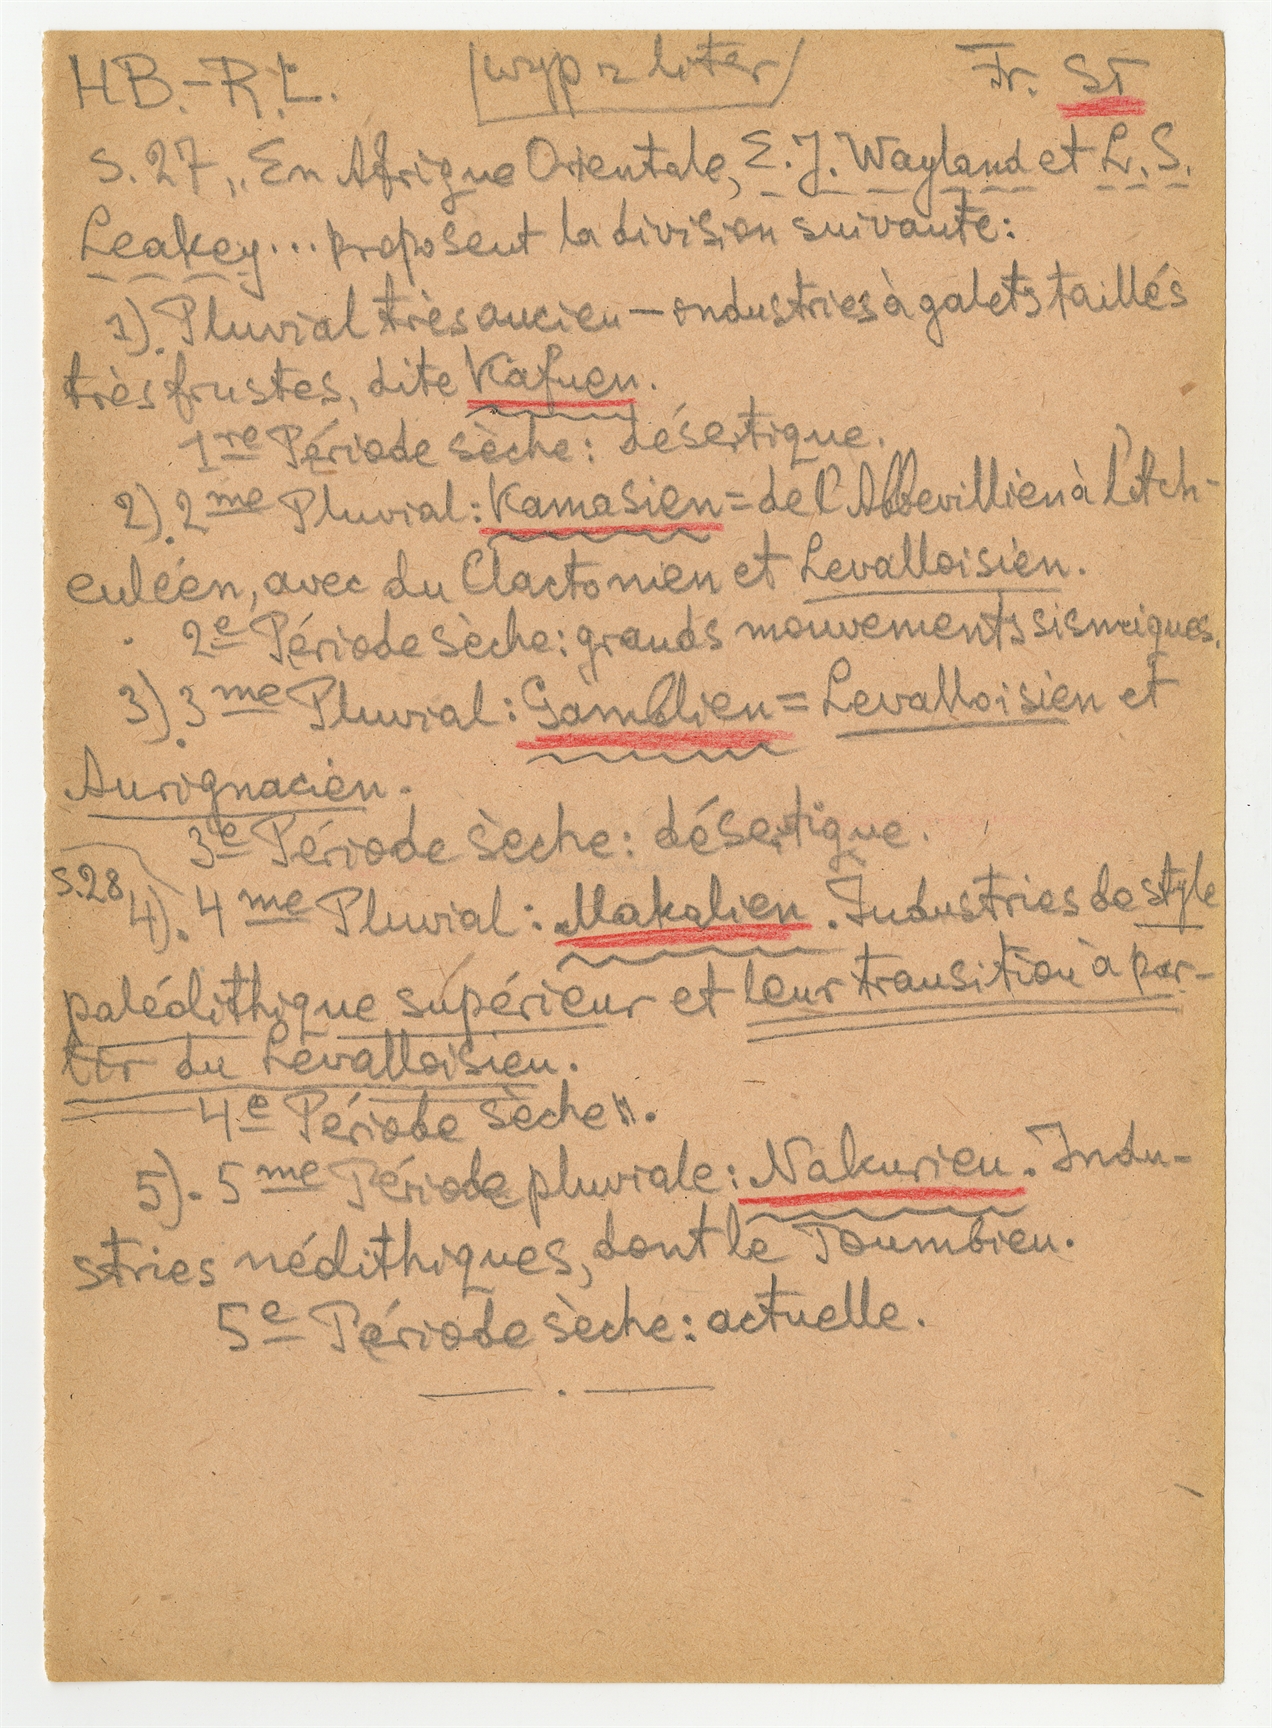 HB.-R.L. [wyp z liter] Fr. ST
S. 27 „En Afrique Orientale, E. J. Wayland et L. S.
Leakey... proposent la division suivante:
1). Pluvial très ancien — industries à galets taillés
très frustes, dite Kafuen.
1re Période sèche: désertique.
2). 2me Pluvial: Kamasien = de l'Abbevillien à l'Ach-
euléen, avec du Clactonien et Levalloisien.
2e Période sèche: grands mouvements sismiques.
3). 3me Pluvial: Gamblien = Levalloisien et
Aurignacien.
3e Période sèche: désertique.
S.28
4). 4me Pluvial: Makalien. Industries de style
paléolithique supérieur et leur transition à par-
tir du Levalloisien.
4e Période sèche".
5). 5me Période pluviale: Nakurien. Indu-
stries néolithiques, dont le Toumbien.
5e Période sèche: actuelle.